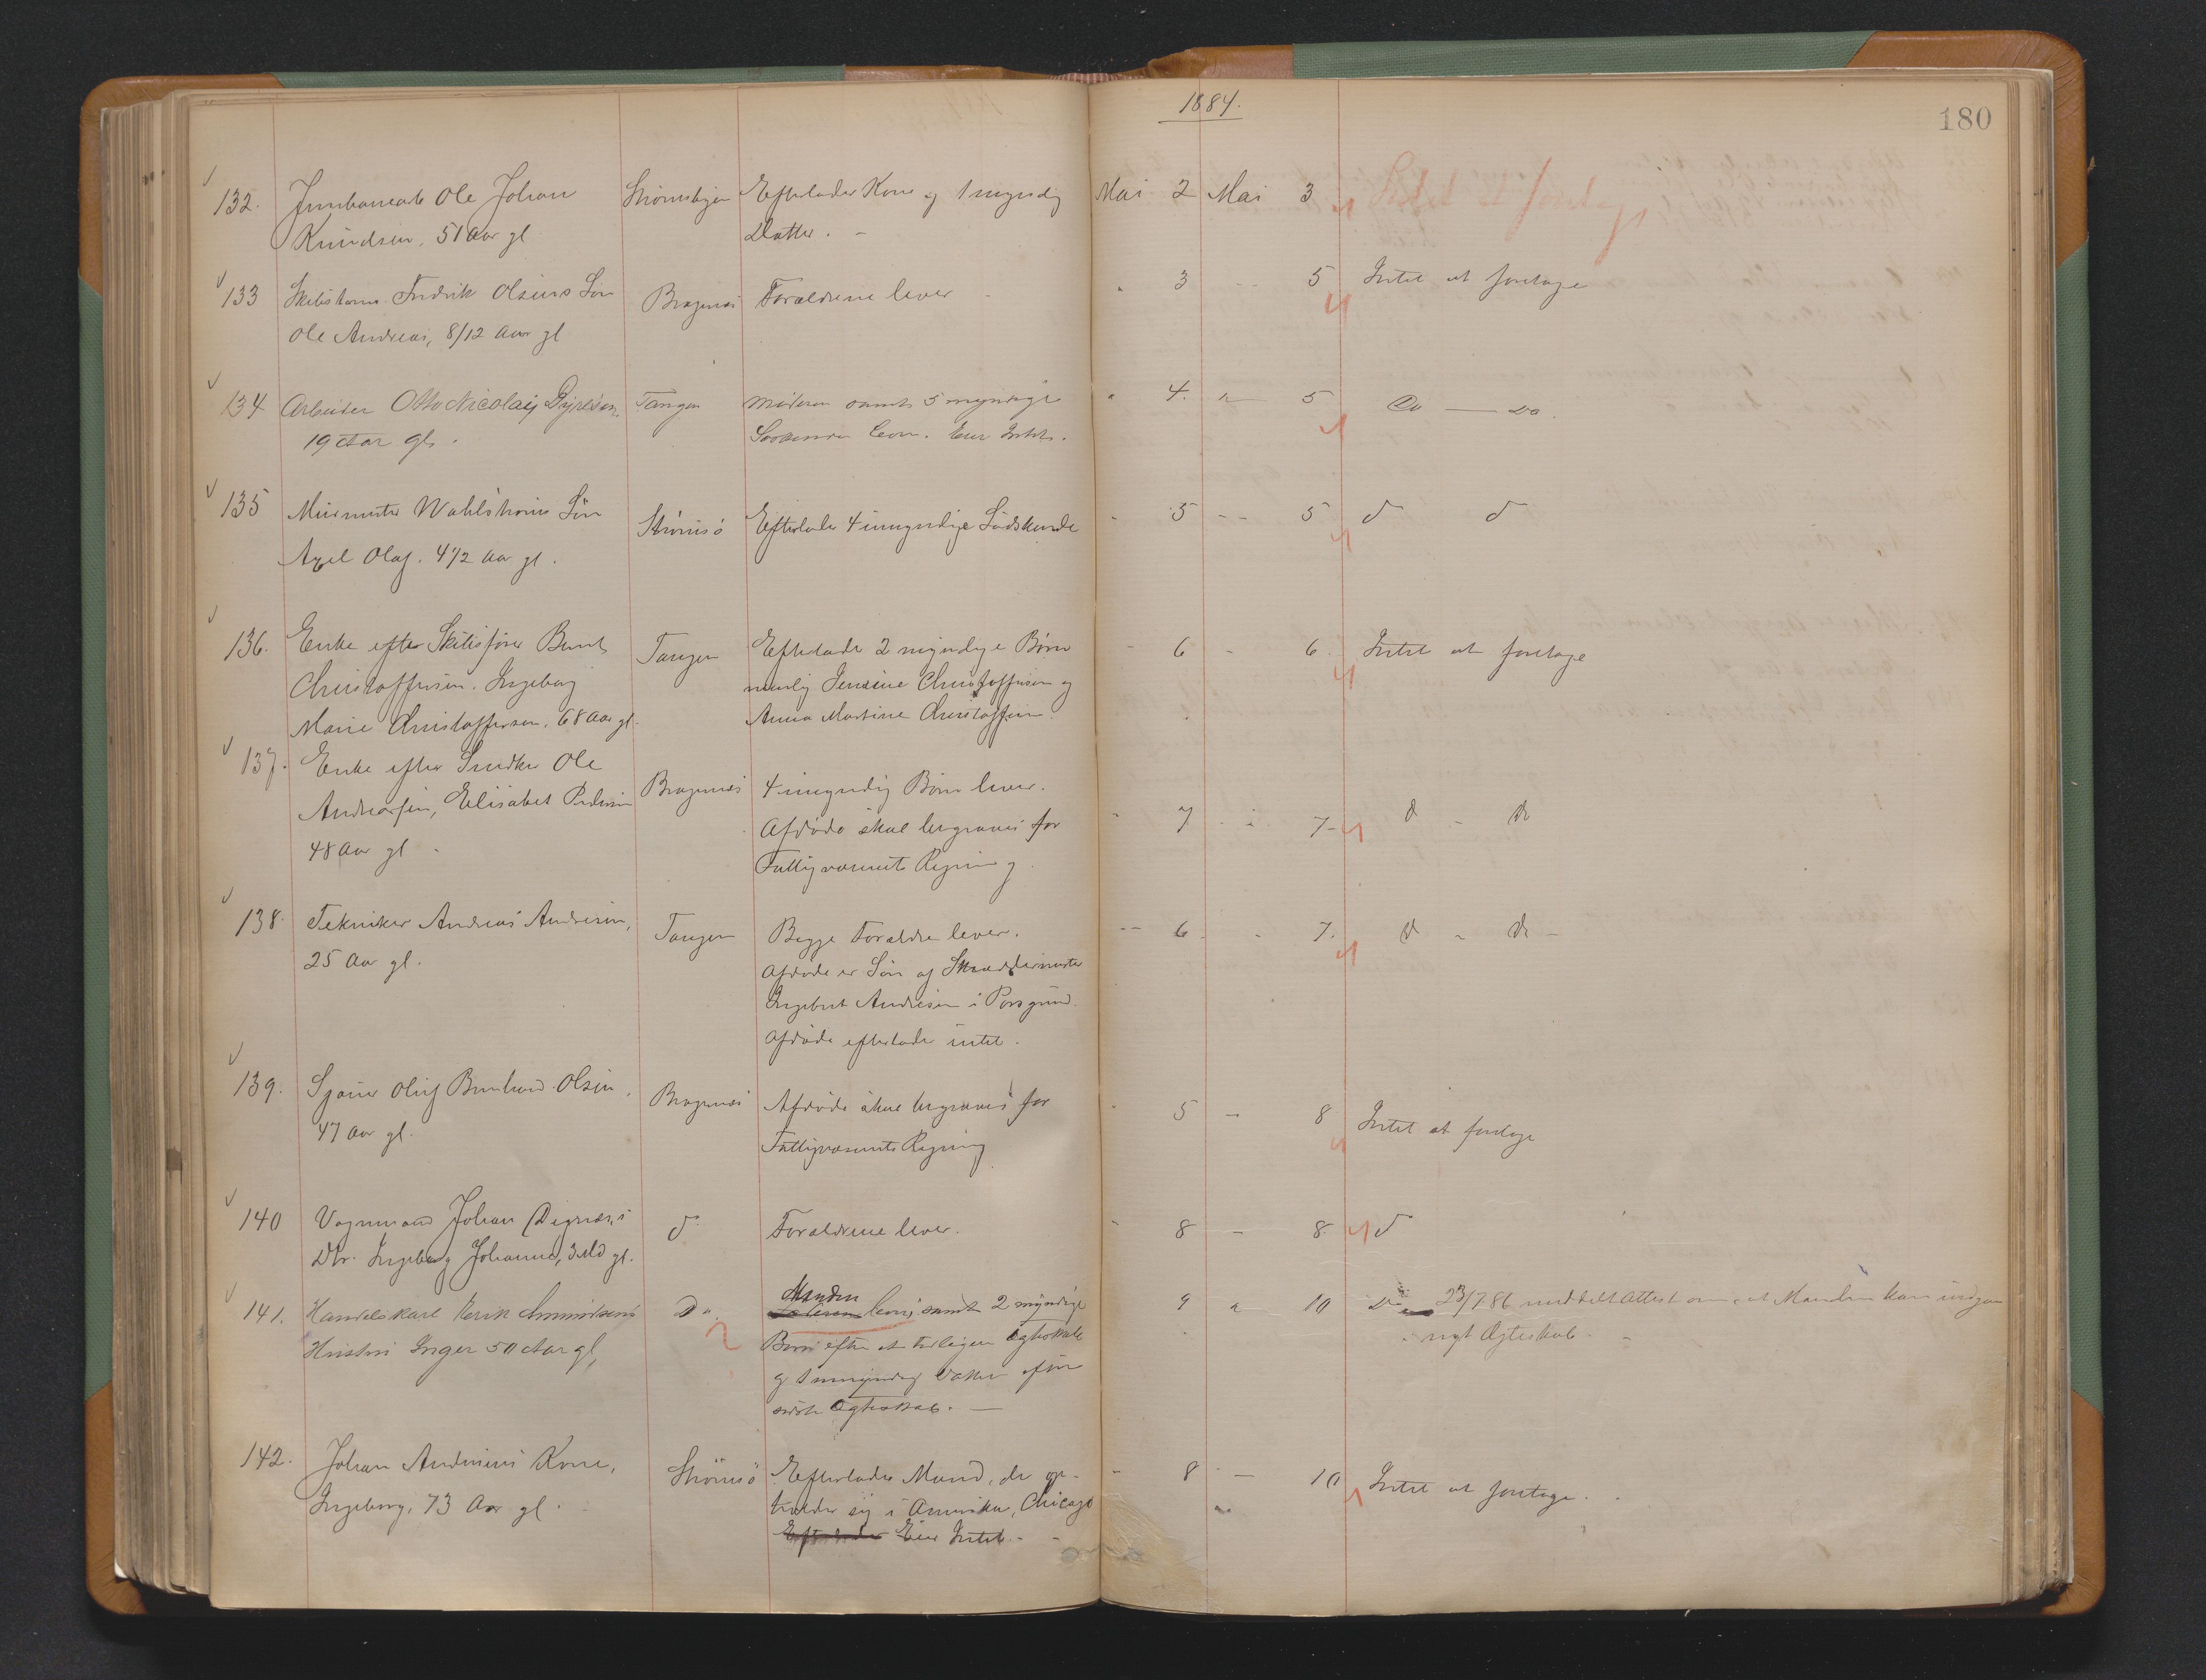 1884.
180
132. Ole Johan Strømsbyen Efterlader Kone og 1 myndig Mai 2 Mai 3 Intet at foretage
Knudsen, 51 Aar gl Datter. -
133 Fredrik Olsens Søn Bragernæs Forældrene lever - " 3 - - 5 Intet at foretage
Ole Andreas, 8/12 Aar gl
134 Arbeider Otto Nicolaij Tangen Moderen samt 5 myndige " 4. " 5 Do — Do.
19 Aar gl. lever. Eier Intet.
135 Murmester Wahlstrøms Søn Strømsø Efterlader 4 umyndige Sødskende - 5 - - 5 d d
Axel Olaf. 4 1/2 Aar gl.
136. Enke efter Skibsfører Bernt Tangen Efterlader 2 myndige Børn - 6 - 6. Intet at foretage
Christoffersen. Ingeborg nemlig Christoffersen og
Marie Christoffersen, 68 Aar gl. Anna Martine Christoffersen.
137. Enke efter Snedker Ole
Andreassen, Elisabet Pedersen Bragernæs 4 umyndig Børn lever. - 7 - - 7 - d - do
48 Aar gl - Afdøde skal begraves for
Fattigvæsenets Regning.
138. Tekniker Andreas Andresen, Tangen Begge Forældre lever. - 6 - - 7. d - do -
25 Aar gl. Afdøde er Søn af Skræddermester
Ingebret Andresen i Porsgrund.
Afdøde efterlader intet.
139. Sjouer Oluf Bernhard Olsen, Bragernæs Afdøde skal begraves for - 5 - 8 Intet at foretage
47 Aar gl. Fattigvæsenets Regning
140 Vognmand Johan d. Forældrene lever. - 8 - 8. d
Dtr. Ingeborg Johanne, 3 Md gl.
141. Handelskarl Do. Manden lever samt 2 myndige 9 " 10 Do 23/7 86 meddelt Attest om, at Manden kan indgaa
Hustru Inger 50 Aar gl, Børn efter et tidligere Ægteskab i nyt Ægteskab. -
og 1 umyndig Datter efter
sidste Ægteskab. —
142. Johan Andersens Kone, Strømsø Efterlader Mand, der op- - 8 - 10 Intet at foretage.
Ingeborg, 73 Aar gl. holder sig i Amerika, Chicago
Efterlader Eier Intet. -